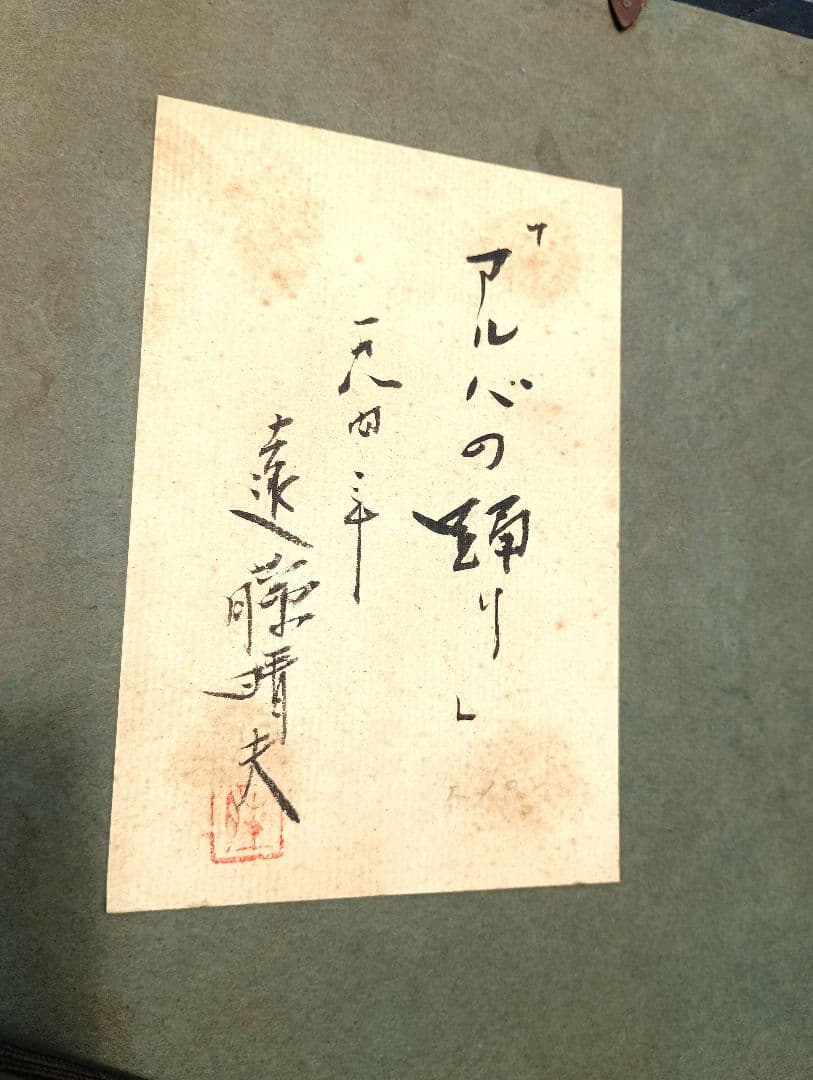 「アルバの踊り」
一九四三年
遠藤晴夫